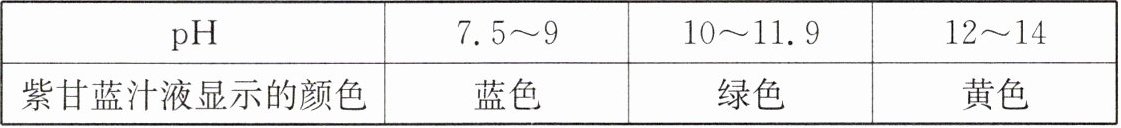 pH 7.5～9 10～11.9 12～14
紫甘蓝汁液显示的颜色 蓝色 绿色 黄色